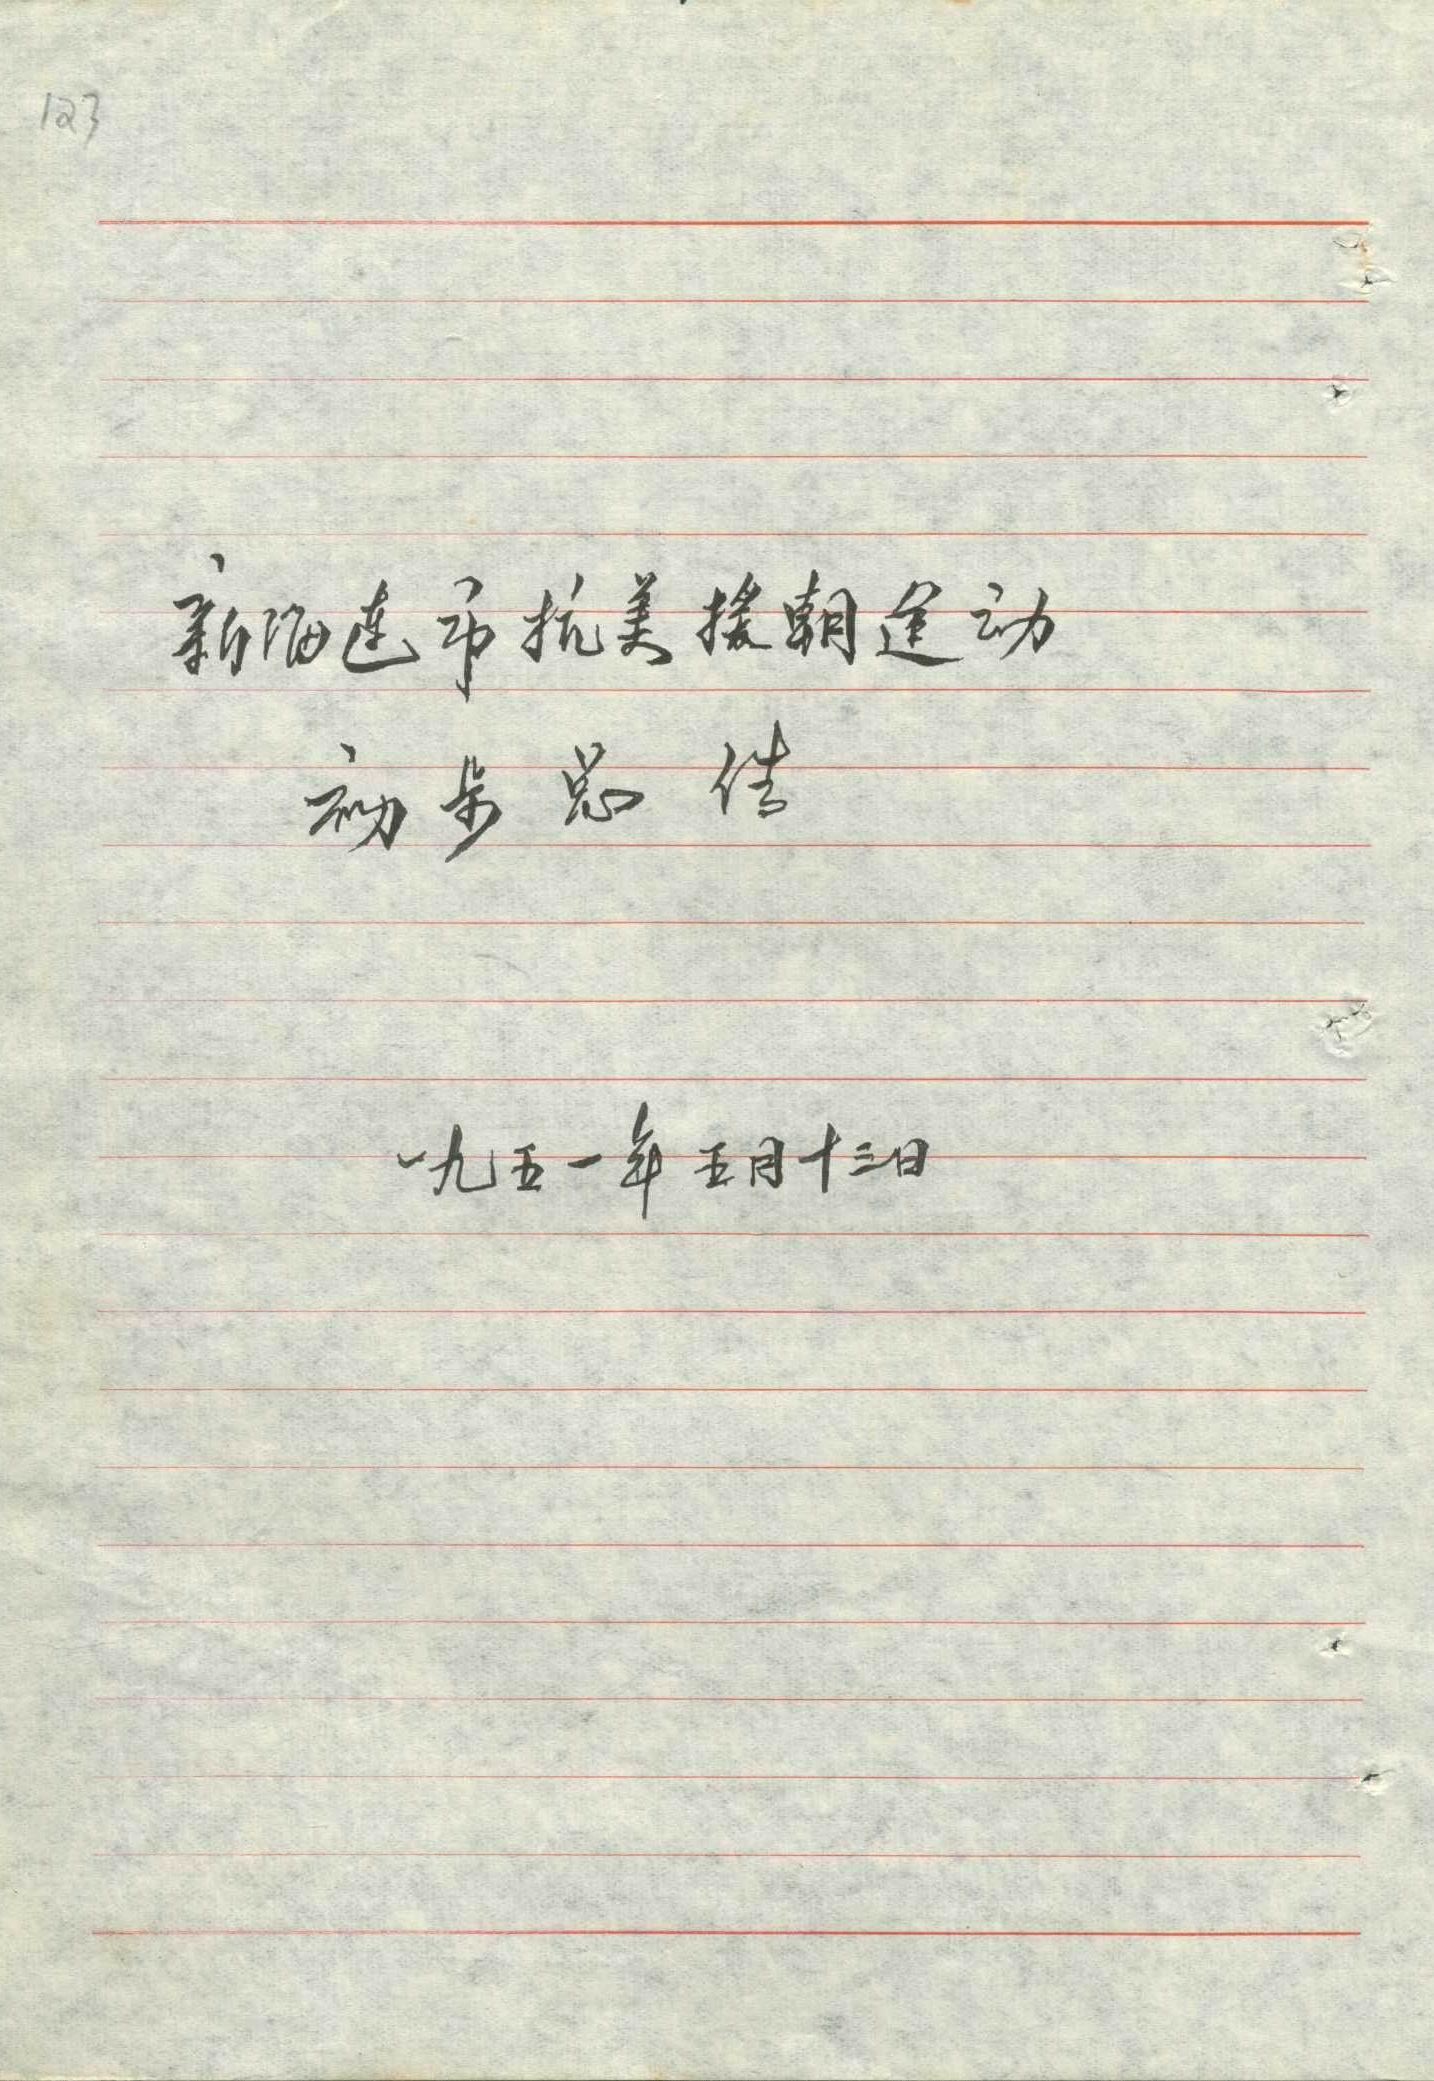 123
新海连市抗美援朝运动
初步总结
一九五一年五月十三日